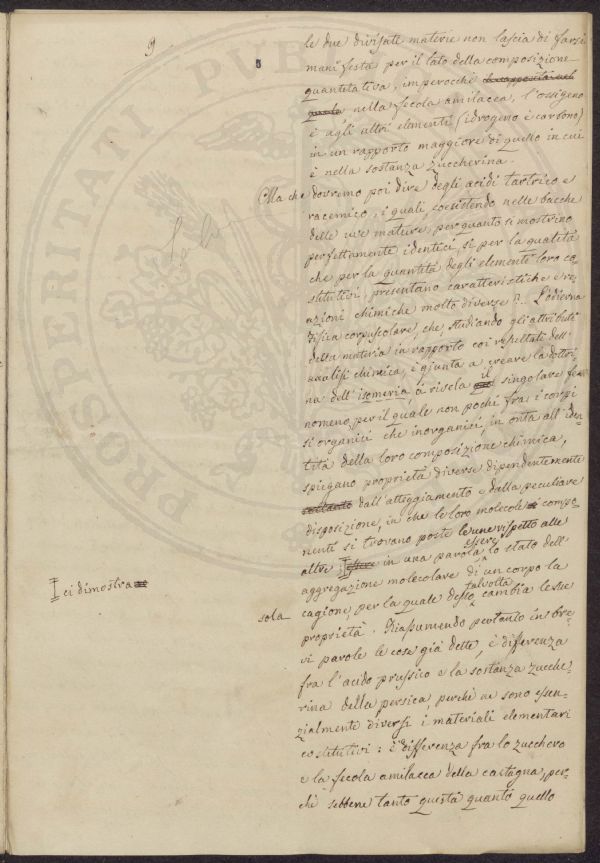 9
le due divisate materie non lascia di farsi
manifesta per il lato della composizione
quantitativa, imperocchè
nella fecola amilacea, l'ossigeno
è agli altri elementi (idrogeno e carbono)
in un rapporto maggiore di quello in cui
è nella sostanza zuccherina.
Ma che dovremo poi dire degli acidi tartrico e
racemico, i quali, coesistendo nelle bacche
delle uve mature, per quanto si mostrino
perfettamente identici, sì per la qualità
che per la quantità degli elementi loro co-
stitutivi, presentano caratteristiche e re-
azioni chimiche molto diverse?.. L'odierna
fisica corpuscolare, che, studiando gli attributi
della materia in rapporto coi resultati dell'
analisi chimica, è giunta a creare la dottri-
na dell'isomeria, à risela il singolare fe-
nomeno, per il quale non pochi fra i corpi
sì organici che inorganici, in onta all'iden-
tità della loro composizione chimica,
spiegano proprietà diverse dipendentemente
soltanto dall'atteggiamento e dalla peculiare
disposizione, in che le loro molecole compo-
nenti si trovano poste le une rispetto alle
altre; Essere in una parola essere lo stato dell'
ci dimostra
aggregazione molecolare di un corpo la
sola cagione, per la quale desso talvolta cambia le sue
proprietà. Riassumendo pertanto in bre-
vi parole le cose già dette, è differenza
fra l'acido prussico e la sostanza zucche-
rina della persica, perchè ne sono essen-
zialmente diversi i materiali elementari
costitutivi: è differenza fra lo zucchero
e la fecola amilacea della castagna, per-
chè sebbene tanto questa quanto quello